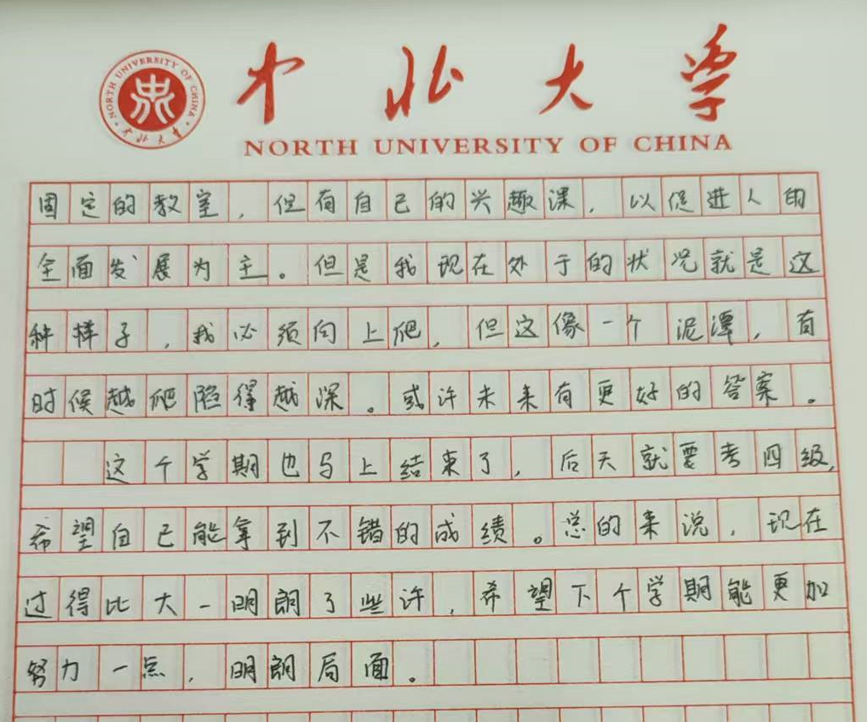 中北大学
NORTH UNIVERSITY OF CHINA
NORTH UNIVERSITY OF CHINA
中北大学
固定的教室，但有自己的兴趣课，以促进人的
全面发展为主。但是我现在处于的状况就是这
种样子，我必须向上爬，但这像一个泥潭，有
时候越爬陷得越深。或许未来有更好的答案。
这个学期也马上结束了，后天就要考四级，
希望自己能拿到不错的成绩。总的来说，现在
过得比大一明朗了些许，希望下个学期能更加
努力一点，明朗局面。